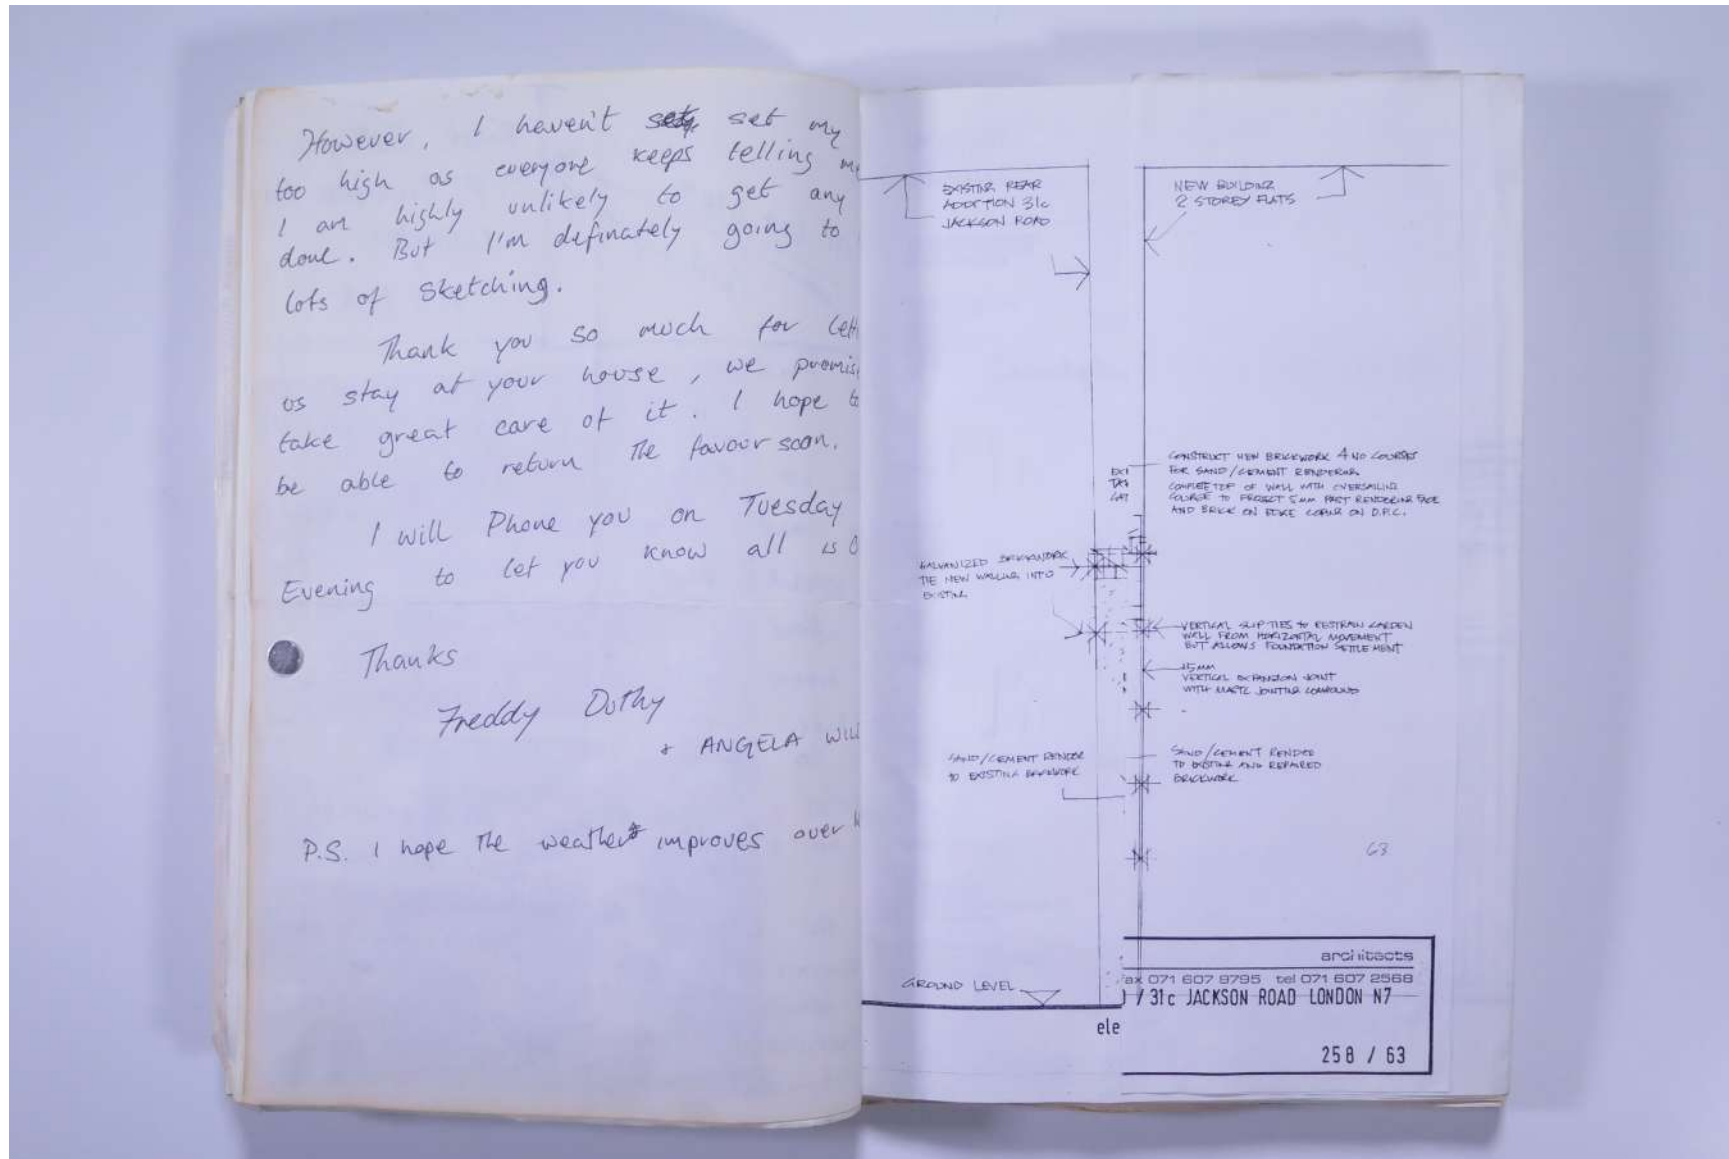 However, I haven't set my
too high as everyone keeps telling me
I am highly unlikely to get any
done. But I'm definately going to
lots of sketching.
Thank you so much for lett
us stay at your house, we promis
take great care of it. I hope to
be able to return the favour soon.
I will Phone you on Tuesday
Evening to let you know all is O
Thanks
Freddy Duthy
+ ANGELA WILL
P.S. I hope the weather improves over
EXISTING REAR
ADDITION 31c
JACKSON ROAD
NEW BUILDING
2 STOREY FLATS
CONSTRUCT NEW BRICKWORK 4 NO COURSES
FOR SAND/CEMENT RENDERING
COMPLETE TOP OF WALL WITH OVERSAILING
COURSE TO PROJECT 5MM PAST RENDERING FACE
AND BRICK ON EDGE COPING ON D.P.C.
GALVANIZED BRICKWORK
TIE NEW WALLING INTO
EXISTING
VERTICAL SLIP TIES to RESTRAIN GARDEN
WALL FROM HORIZONTAL MOVEMENT
BUT ALLOWS FOUNDATION SETTLEMENT
15MM
VERTICAL EXPANSION JOINT
WITH MASTIC JOINTING COMPOUND
SAND/CEMENT RENDER
to EXISTING BRICKWORK
SAND/CEMENT RENDER
TO EXISTING AND REPAIRED
BRICKWORK
63
GROUND LEVEL
architects
fax 071 607 9795 tel 071 607 2568
/ 31c JACKSON ROAD LONDON N7
ele
258 / 63